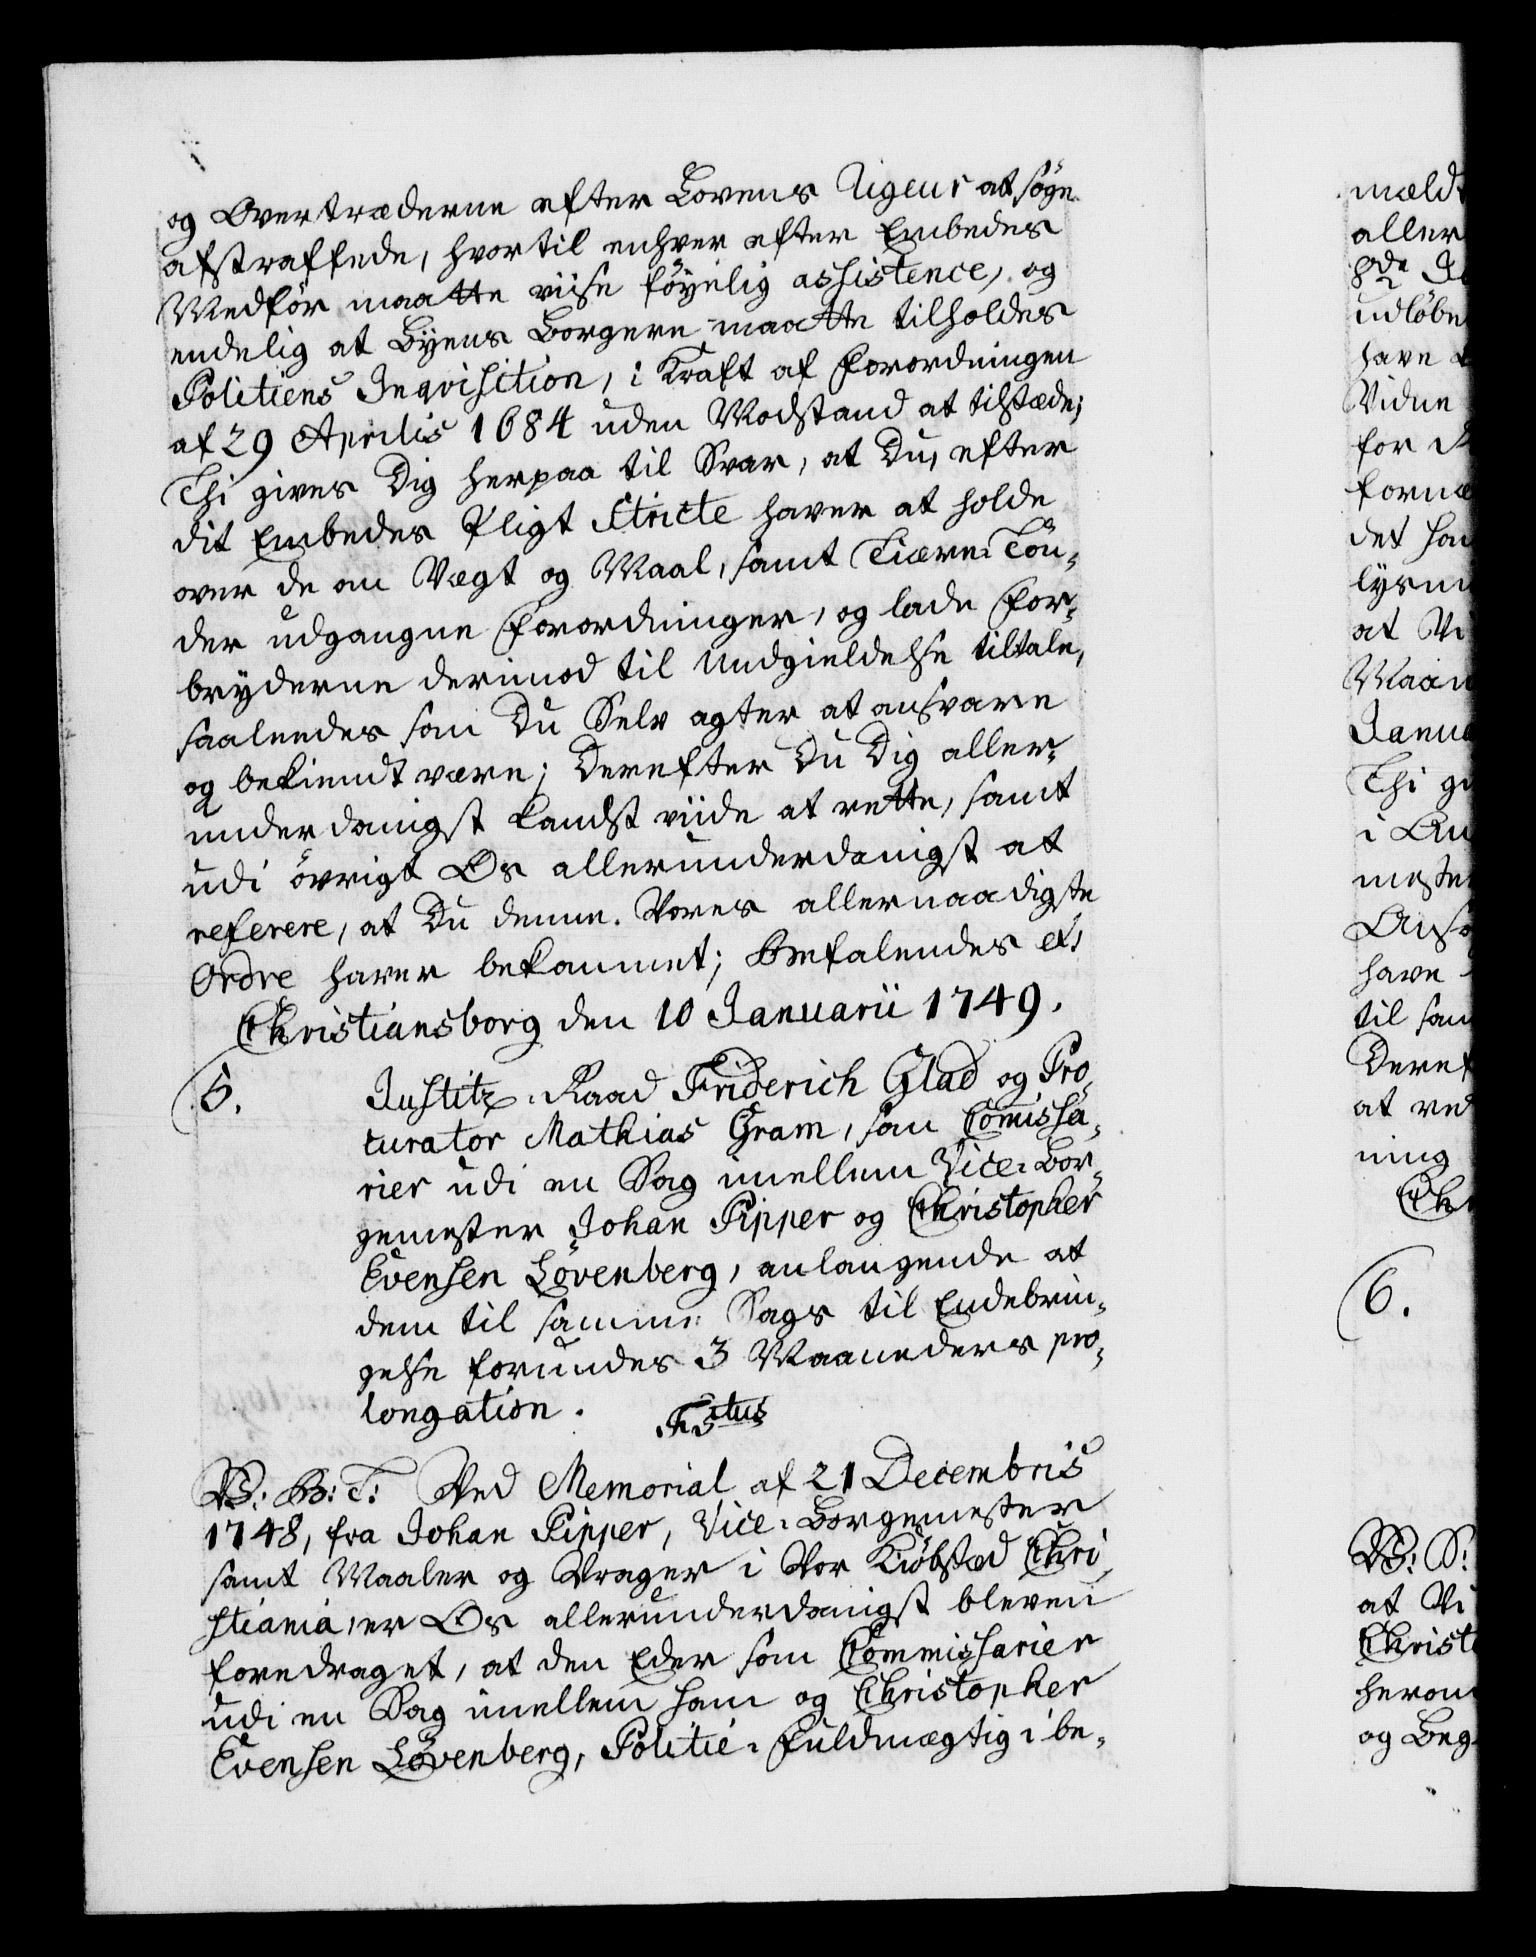 og Overtræderne efter Lovens Rigeur at søge
afstraffede, hvortil enhver efter Embedes
Medför maatte viise föyelig assistence, og
endelig at Byens Borgere maatte tilholdes
Politiens Inqvisition, i Kraft af Forordningen
af 29 Aprilis 1684 uden Modstand at tilstæde;
Thi gives Dig herpaa til Svar, at Du, efter
dit Embedes Pligt stricte haver at holde
over de om Vægt og Maal, samt Tiære-Tön-
der udgangne Forordninger, og lade For-
bryderne derimod til Undgieldelse tiltale,
saaledes som Du Selv agter at ansvare
og bekiendt være; Derefter Du Dig aller-
underdanigst kandst viide at rette, samt
udi övrigt Os allerunderdanigst at
referere, at Du denne Vores allernaadigste
Ordre haver bekommet; Befalendes etc
Christiansborg den 10 Januarii 1749.
5. Justitz-Raad Friderich Glad og Pro-
curator Mathias Gram, som Comissa-
rier udi en Sag imellem Vice-Bor-
gemester Johan Pipper og Christopher
Evensen Lövenberg, anlangende at
dem til samme Sags til Endebrin-
gelse forundes 3 Maaneders pro-
longation.
F5tus
V: G: T: Ved Memorial af 21 Decembris
1748, fra Johan Pipper, Vice-Borgemester
samt Maaler og Vrager i Vor Kiöbstæd Chri-
stiania, er Os allerunderdanigst bleven
foredraget, at den Eder som Commissarier
udi en Sag imellem ham og Christopher
Evensen Lövenberg, Politie-Fuldmægtig i be-
mældt
aller
8de Ja
udlöbe
have
Vidne
for
det
at Vi
Maan
Janua
Thi gi
i An
meste
have
til sam
Deref
at ved
ning
Chr
6.
V: S:
at Vi
Christ
herom
og Beg